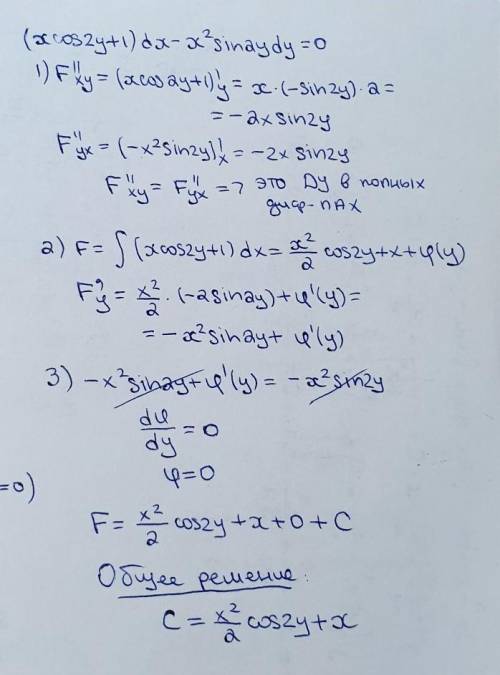 (xcos2y+1)dx-x²sin2ydy=0
1) F''xy=(xcos2y+1)'y=x·(-sin2y)·2=
=-2xsin2y
F''yx=(-x²sin2y)'x=-2xsin2y
F''xy=F''yx=> это ДУ в полных
диф-лАХ
2) F=∫(xcos2y+1)dx=x²/2 cos2y+x+φ(y)
F'y=x²/2·(-2sin2y)+φ'(y)=
=-x²sin2y+φ'(y)
3) -x²sin2y+φ'(y)=-x²sin2y
dφ/dy=0
φ=0
=0)
F=x²/2 cos2y+x+0+C
Общее решение:
C=x²/2 cos2y+x